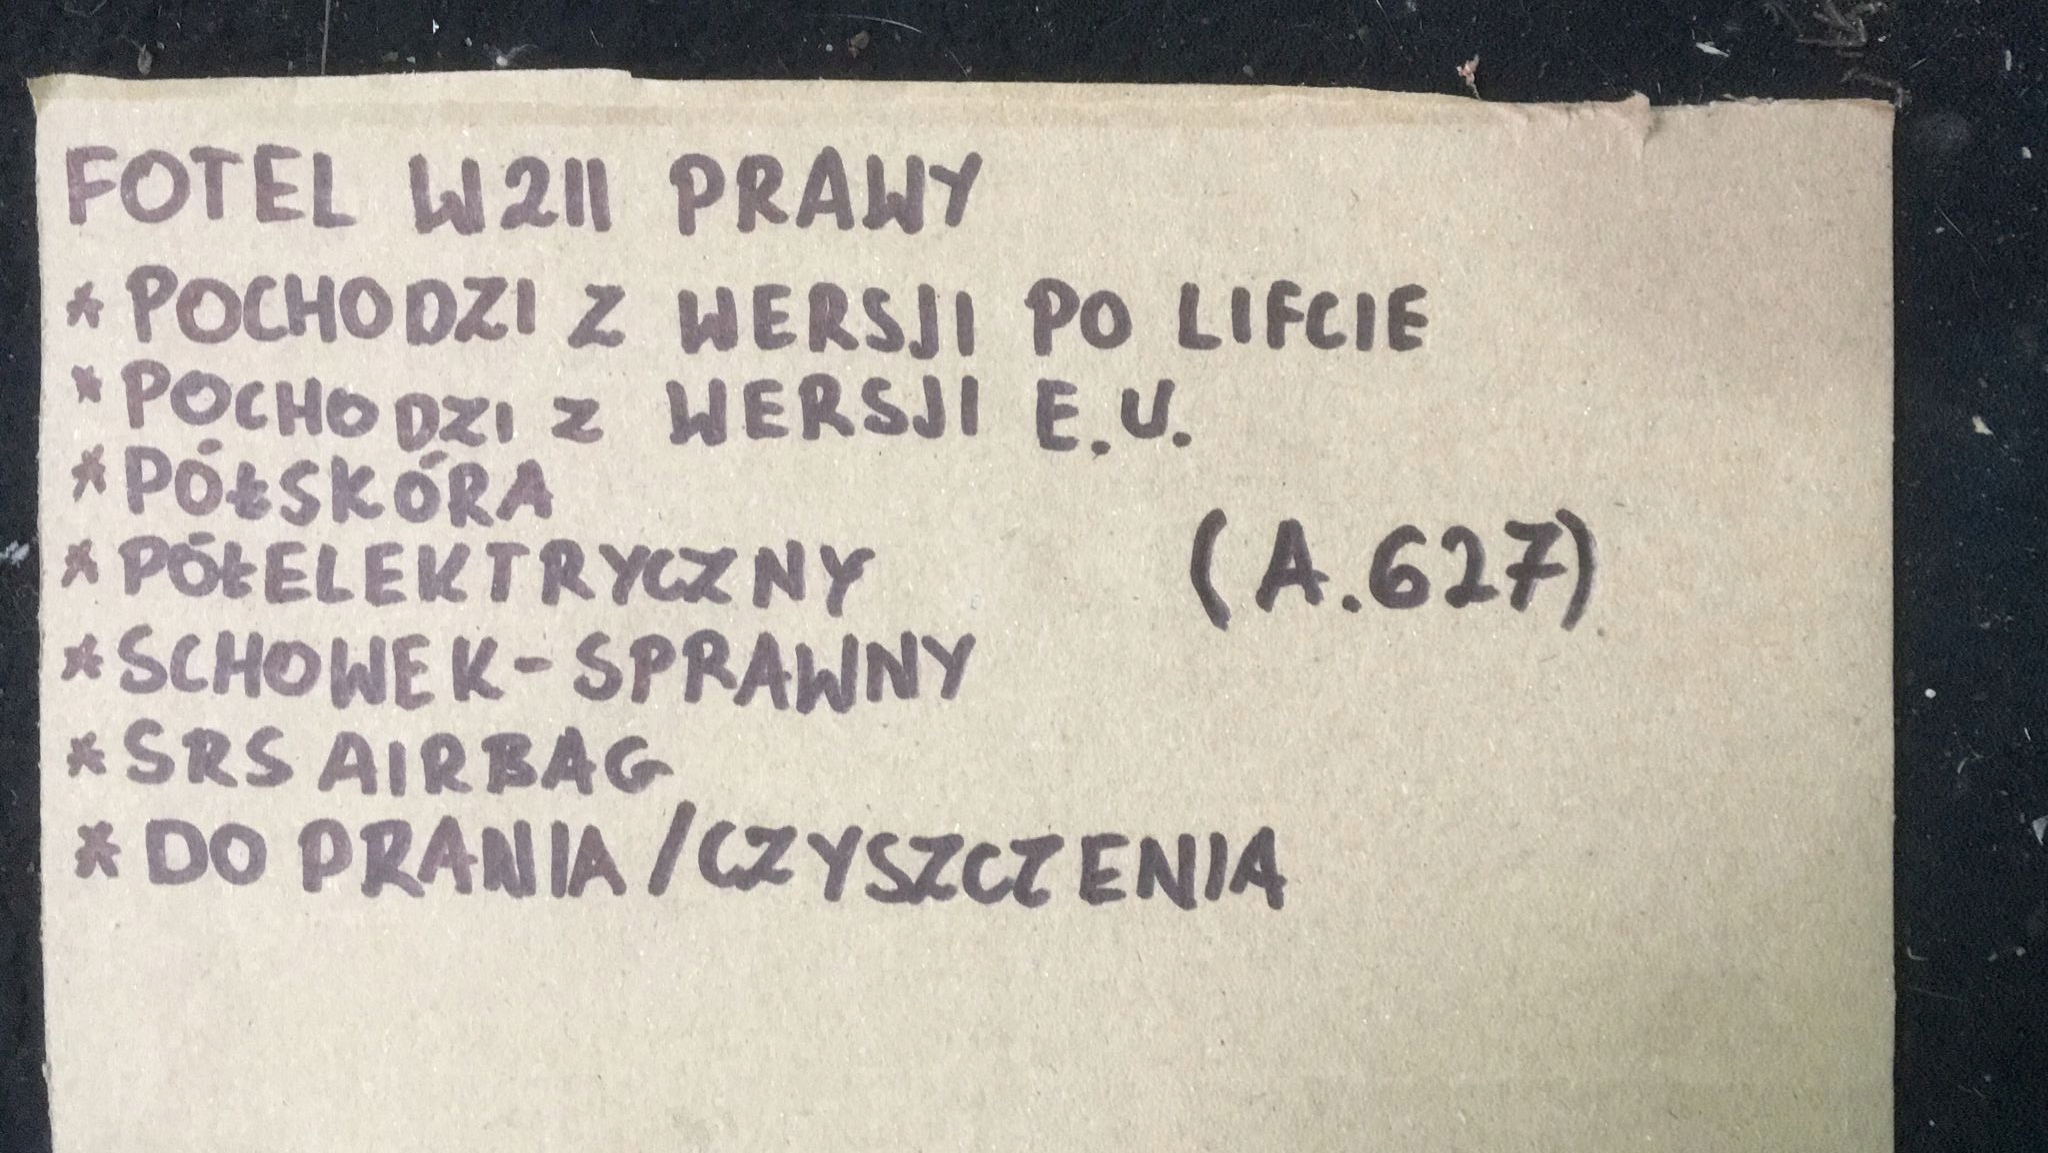 FOTEL W211 PRAWY
* POCHODZI Z WERSJI PO LIFCIE
* POCHODZI Z WERSJI E.U.
* PÓŁSKÓRA
* PÓŁELEKTRYCZNY
(A.627)
* SCHOWEK - SPRAWNY
* SRS AIRBAG
* DO PRANIA/CZYSZCZENIA